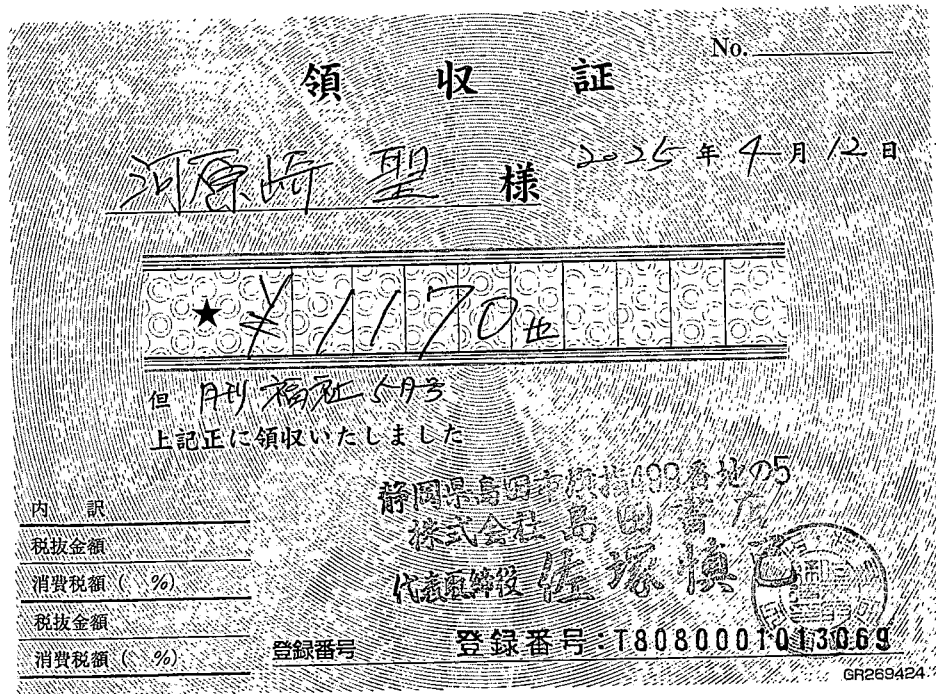 No.
領収証
2025年4月12日
河原崎 聖 様
★ ¥1170也
但 月刊 福祉 5月号
上記正に領収いたしました
静岡県島田市横井499番地の5
株式会社 島田書店
代表取締役 佐塚慎己
内 訳
税抜金額
消費税額( %)
税抜金額
消費税額( %)
登録番号 登録番号:T8080001013069
GR269424